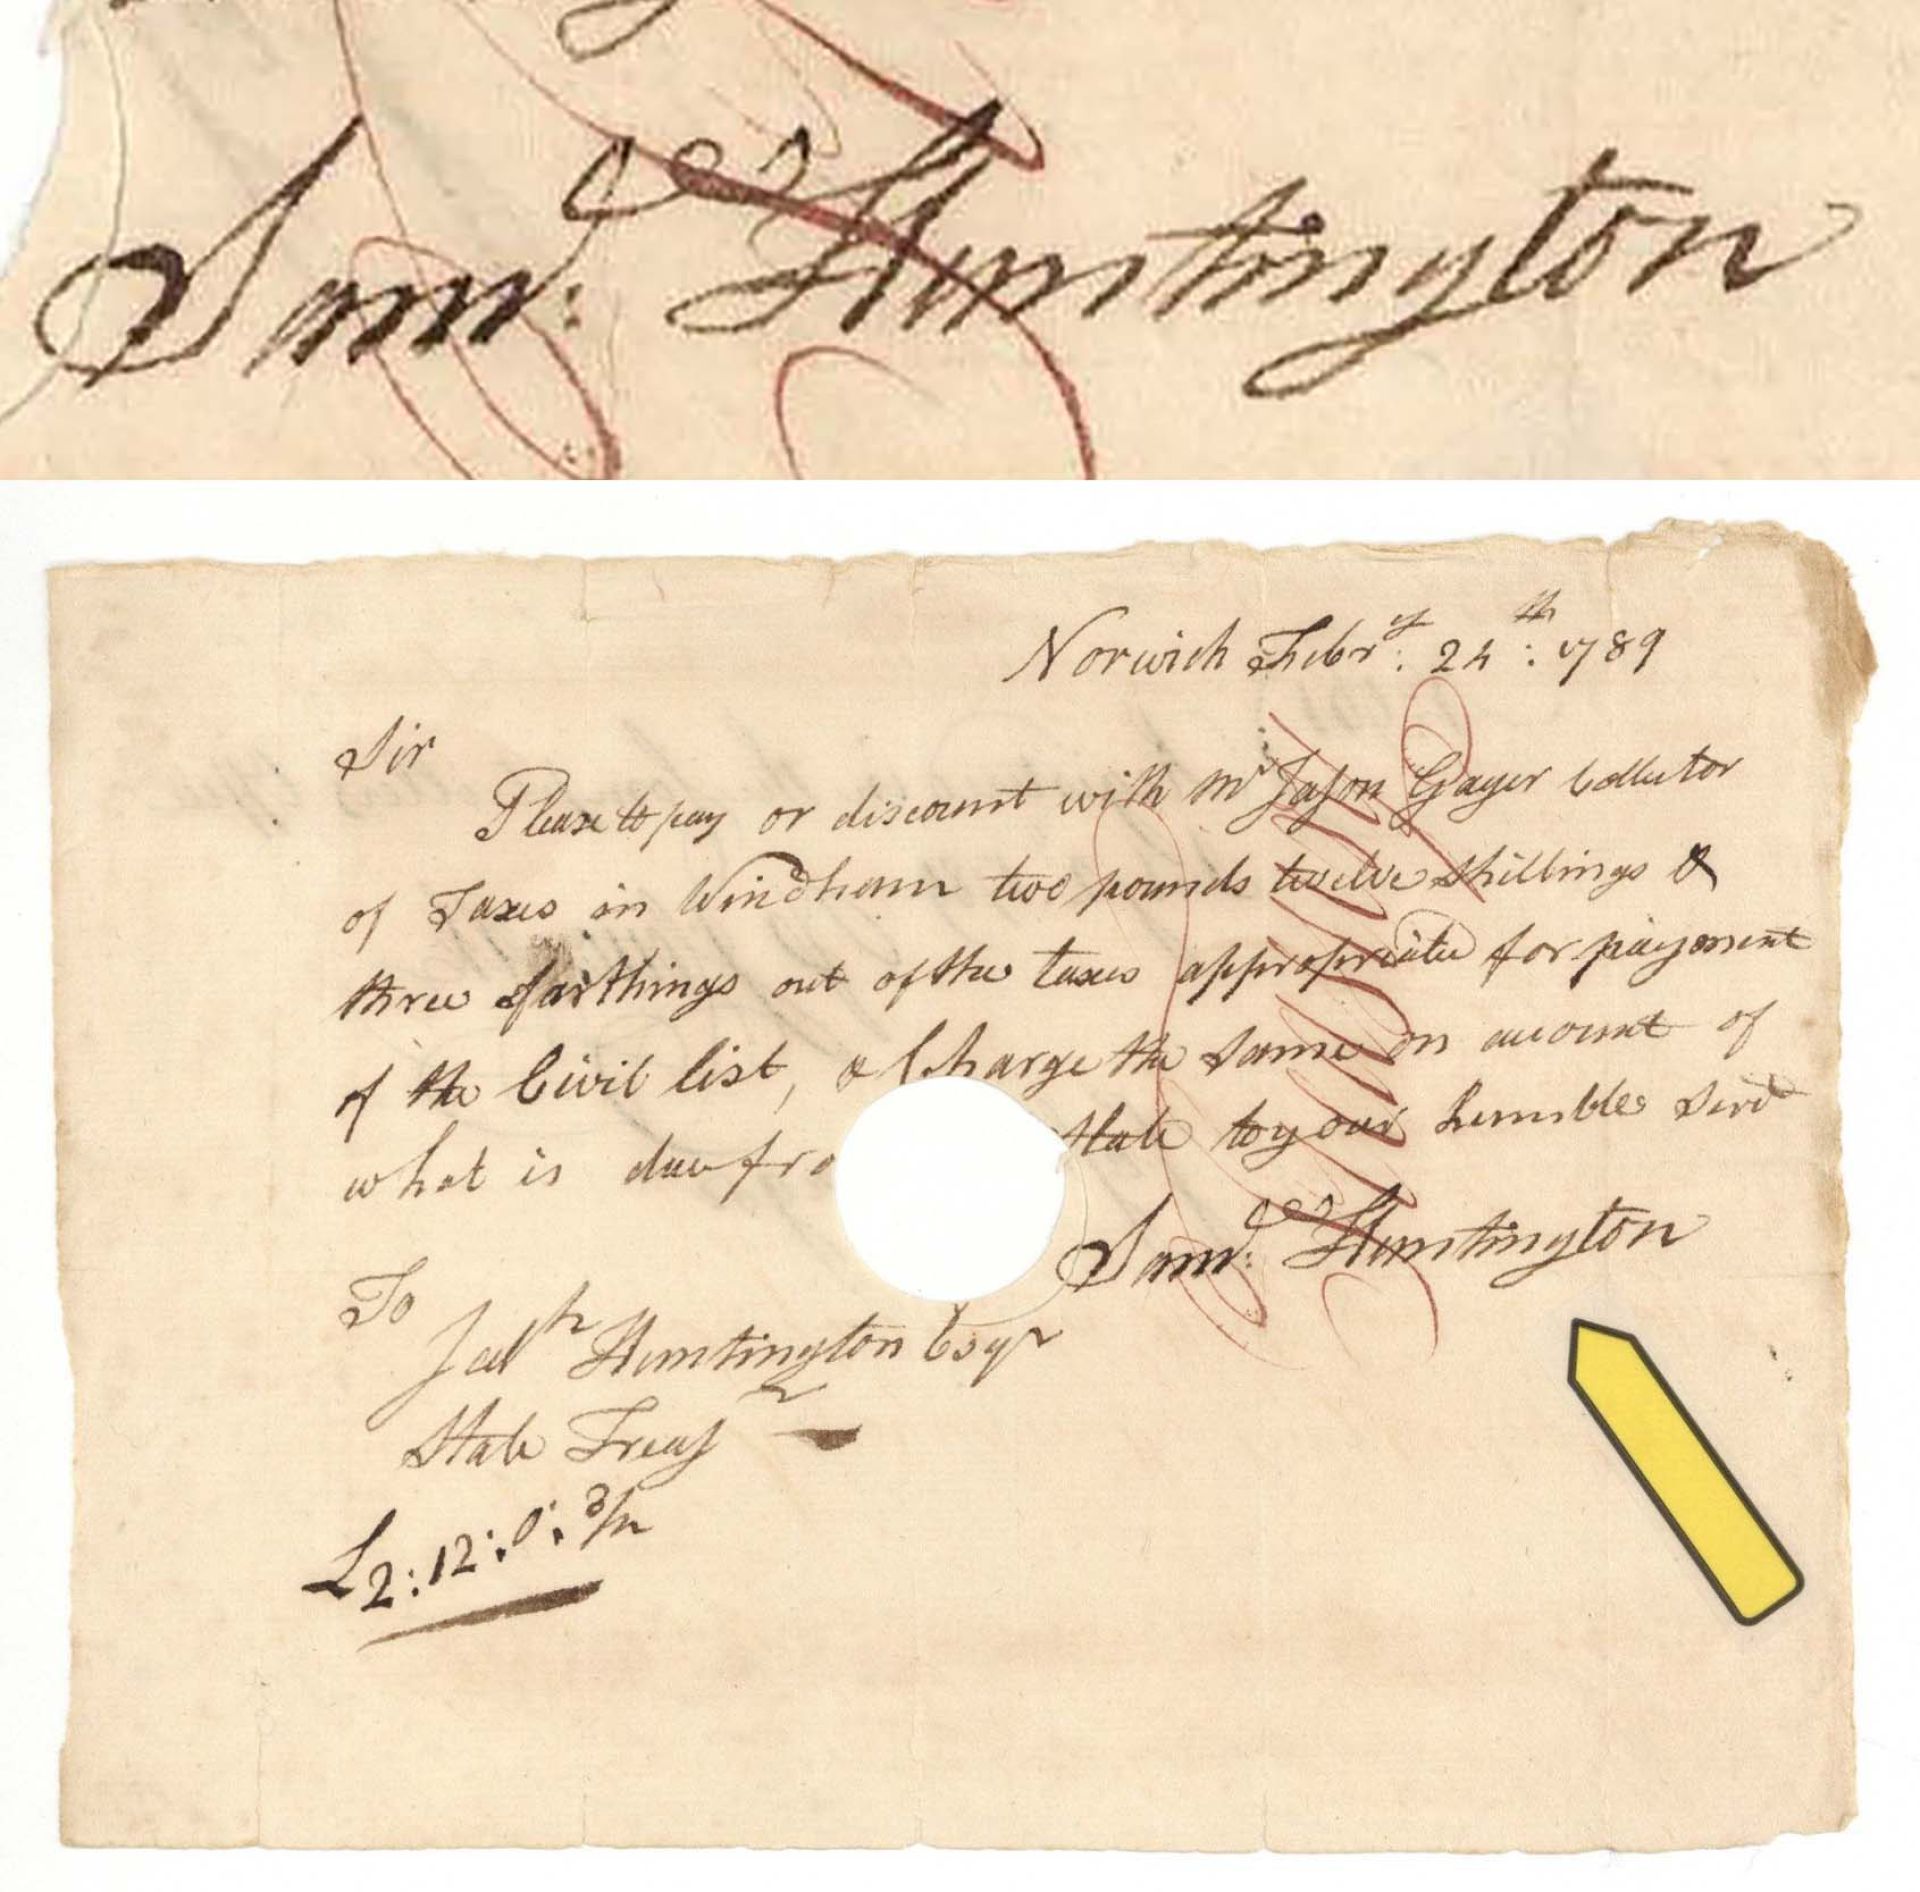 Sam^l: Huntington
Norwich Febr^y: 24^th: 1789
Sir
Please to pay or discount with M^r Jason Gager Collector
of Taxes in Windham two pounds twelve Shillings &
three farthings out of the taxes appropriate for payment
of the Civil list, & Charge the Same on account of
what is due fro State to your humble Serv^t
Sam^l: Huntington
To
Jed^h Huntington Esq^r
State Treas^r
£2:12:0:3/4